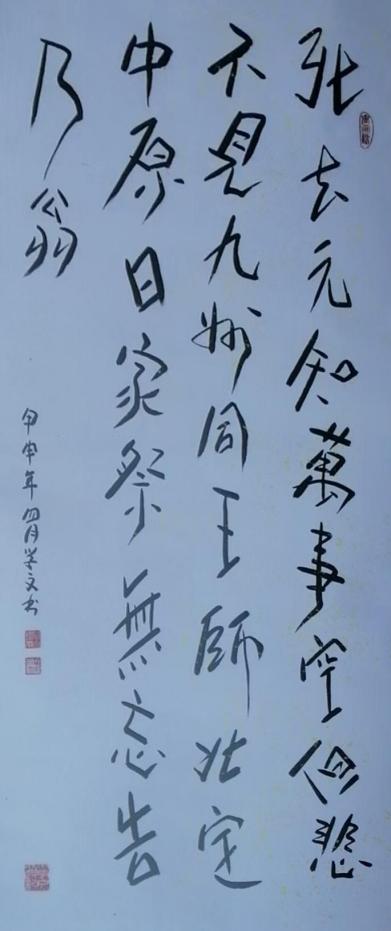 死去元知萬事空但悲
不見九州同王師北定
中原日家祭無忘告
乃翁
甲申年四月学文书